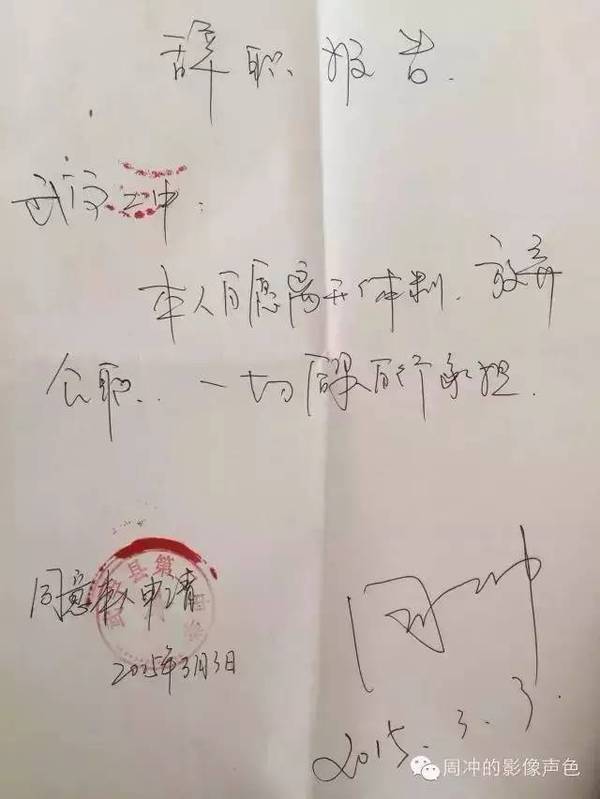 辞职报告.
武宁二中：
本人自愿离开体制、放弃
公职、一切后果自行承担.
县第
同意本人申请
2015年3月3日
周冲
2015.3.3.
周冲的影像声色